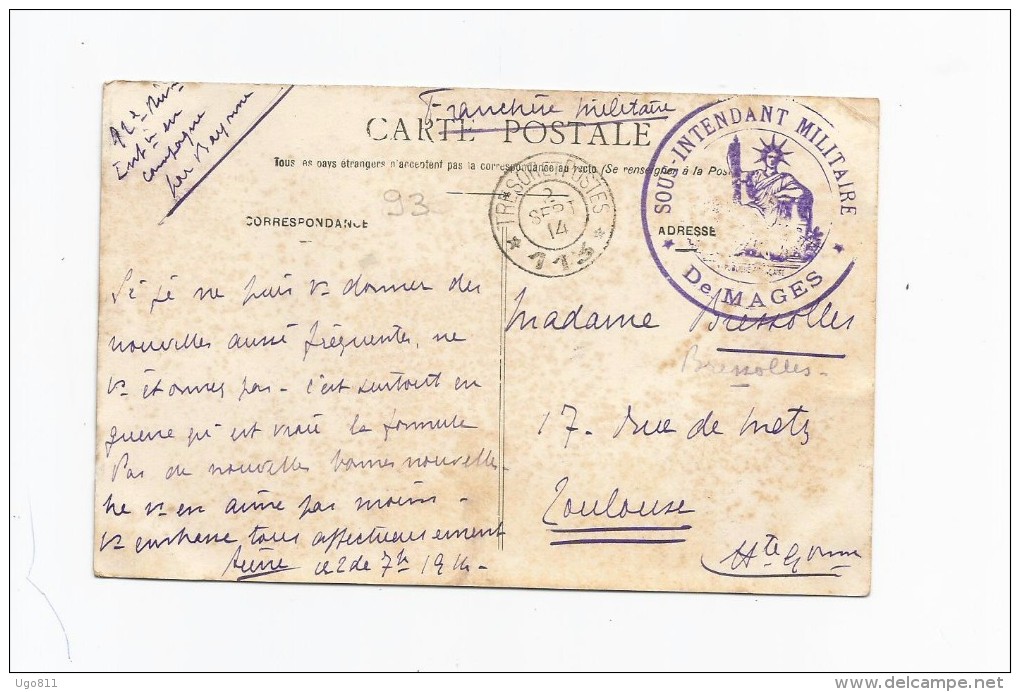 Franchise militaire
CARTE POSTALE
Tous les pays étrangers n'acceptent pas la correspondance au recto (Se renseigner à la Pos
92e
en
campagne
par Bayonne
93
TRESOR ET POSTES
2
SEPT
14
* 113 *
SOUS-INTENDANT MILITAIRE
* De MAGES *
CORRESPONDANCE
ADRESSE
Si je ne puis vs donner des
nouvelles aussi fréquentes, ne
vs étonnez pas - c'est surtout en
guerre qu'est vraie la formule
Pas de nouvelles bonnes nouvelles -
ne vs en aime pas moins -
vs embrasse tous affectueusement
ce 2 de 7b 1914 -
Madame Bressolles
Bressolles -
17 - Rue de Metz
Toulouse
Hte Garonne
Ugo811
www.delcampe.net